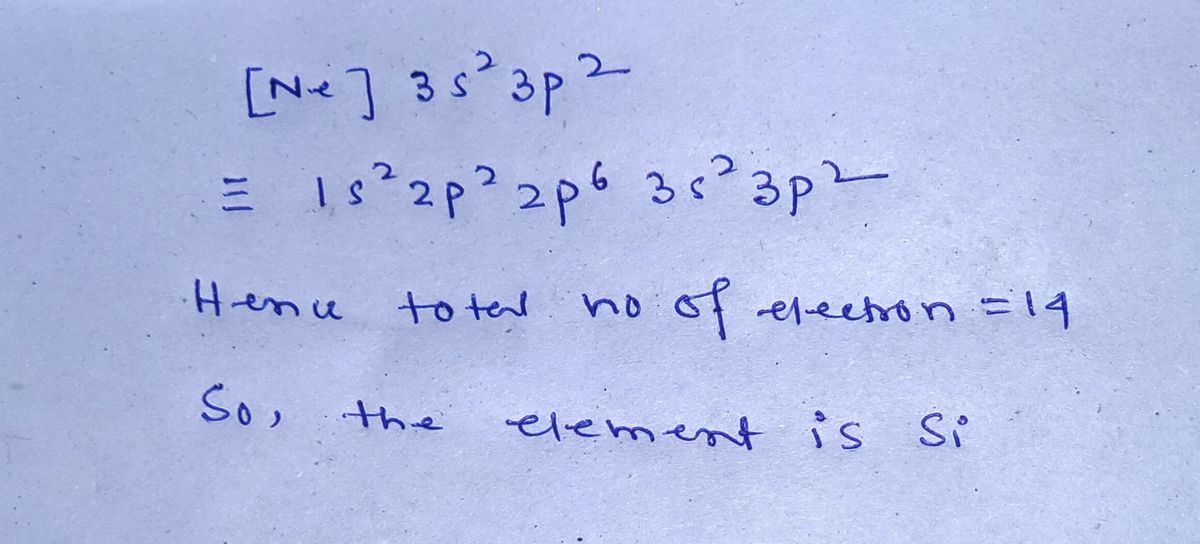 [Ne] 3s² 3p²
≡ 1s² 2p² 2p⁶ 3s² 3p²
Hence total no of electron = 14
So, the element is Si